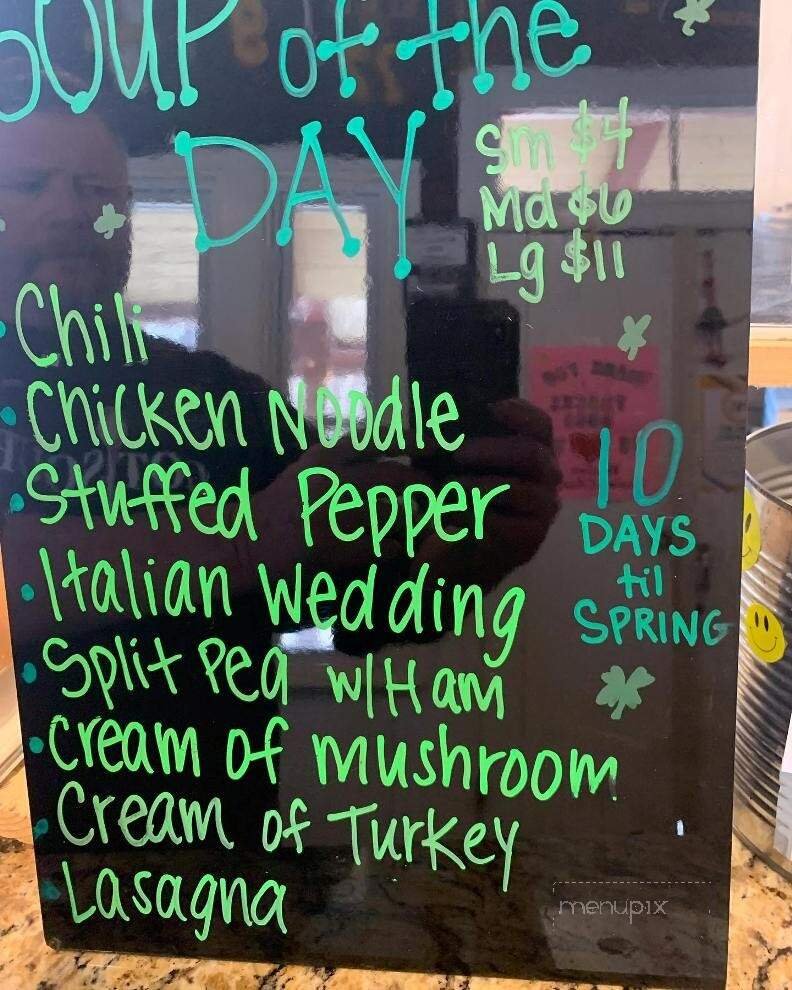 SOUP of the
DAY
Sm $4
Md $6
Lg $11
Chili
Chicken Noodle
Stuffed Pepper
Italian Wedding
Split Pea w/Ham
Cream of mushroom
Cream of Turkey
Lasagna
10
DAYS
til
SPRING
menupix